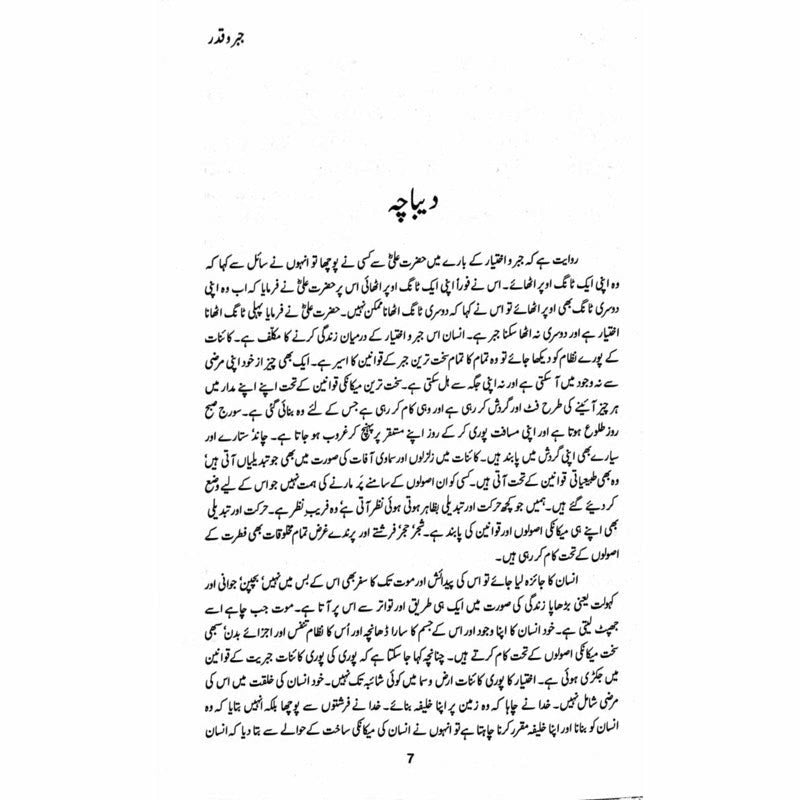 جبر و قدر
دیباچہ
روایت ہے کہ جبر و اختیار کے بارے میں حضرت علیؓ سے کسی نے پوچھا تو انہوں نے سائل سے کہا کہ
وہ اپنی ایک ٹانگ اوپر اٹھائے۔ اس نے فوراً اپنی ایک ٹانگ اوپر اٹھائی اس پر حضرت علیؓ نے فرمایا کہ اب وہ اپنی
دوسری ٹانگ بھی اوپر اٹھائے تو اس نے کہا کہ دوسری ٹانگ اٹھانا ممکن نہیں۔ حضرت علیؓ نے فرمایا پہلی ٹانگ اٹھانا
اختیار ہے اور دوسری نہ اٹھا سکنا جبر ہے۔ انسان اس جبر و اختیار کے درمیان زندگی کرنے کا مکلّف ہے۔ کائنات
کے پورے نظام کو دیکھا جائے تو وہ تمام کا تمام سخت ترین جبر کے قوانین کا اسیر ہے۔ ایک بھی چیز از خود اپنی مرضی
سے نہ وجود میں آ سکتی ہے اور نہ اپنی جگہ سے ہل سکتی ہے۔ سخت ترین میکانکی قوانین کے تحت اپنے اپنے مدار میں
ہر چیز آئینے کی طرح فٹ اور گردش کر رہی ہے اور وہی کام کر رہی ہے جس کے لئے وہ بنائی گئی ہے۔ سورج صبح
روز طلوع ہوتا ہے اور اپنی مسافت پوری کر کے روز اپنے مستقر پر پہنچ کر غروب ہو جاتا ہے۔ چاند‘ ستارے اور
سیارے بھی اپنی گردش میں پابند ہیں۔ کائنات میں زلزلوں اور سماوی آفات کی صورت میں بھی جو تبدیلیاں آتی ہیں‘
وہ بھی طبیعیاتی قوانین کے تحت آتی ہیں۔ کسی کو ان اصولوں کے سامنے پَر مارنے کی ہمت نہیں جو اس کے لیے وضع
کر دیئے گئے ہیں۔ ہمیں جو کچھ حرکت اور تبدیلی بظاہر ہوتی ہوئی نظر آتی ہے‘ وہ فریبِ نظر ہے۔ حرکت اور تبدیلی
بھی اپنے ہی میکانکی اصولوں اور قوانین کی پابند ہے۔ شجر‘ حجر‘ فرشتے اور پرندے غرض تمام مخلوقات بھی فطرت کے
اصولوں کے تحت کام کر رہی ہیں۔
انسان کا جائزہ لیا جائے تو اس کی پیدائش اور موت تک کا سفر بھی اس کے بس میں نہیں‘ بچپن‘ جوانی اور
کہولت یعنی بڑھاپا زندگی کی صورت میں ایک ہی طریق اور تواتر سے اس پر آتا ہے۔ موت جب چاہے اسے
جھپٹ لیتی ہے۔ خود انسان کا اپنا وجود اور اس کے جسم کا سارا ڈھانچہ اور اُس کا نظام تنفس اور اجزائے بدن‘ سبھی
سخت میکانکی اصولوں کے تحت کام کرتے ہیں۔ چنانچہ کہا جا سکتا ہے کہ پوری کی پوری کائنات جبریت کے قوانین
میں جکڑی ہوئی ہے۔ اختیار کا پوری کائنات ارض و سما میں کوئی شائبہ تک نہیں۔ خود انسان کی خلقت میں اس کی
مرضی شامل نہیں۔ خدا نے چاہا کہ وہ زمین پر اپنا خلیفہ بنائے۔ خدا نے فرشتوں سے پوچھا بلکہ انہیں بتایا کہ وہ
انسان کو بنانا اور اپنا خلیفہ مقرر کرنا چاہتا ہے تو انہوں نے انسان کی میکانکی ساخت کے حوالے سے بتا دیا کہ انسان
7